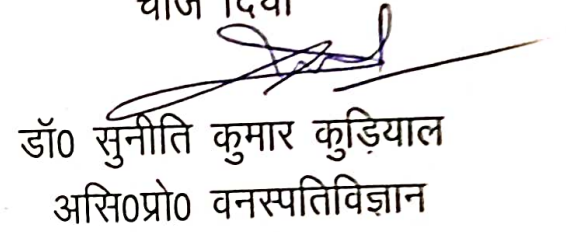 चार्ज दिया
डॉ0 सुनीति कुमार कुड़ियाल
असि0प्रो0 वनस्पतिविज्ञान